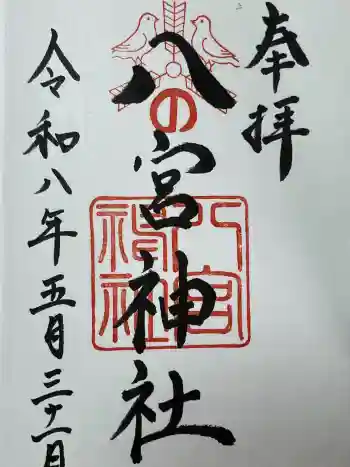 奉拝
八の宮神社
八宮神社
令和八年五月三十一日